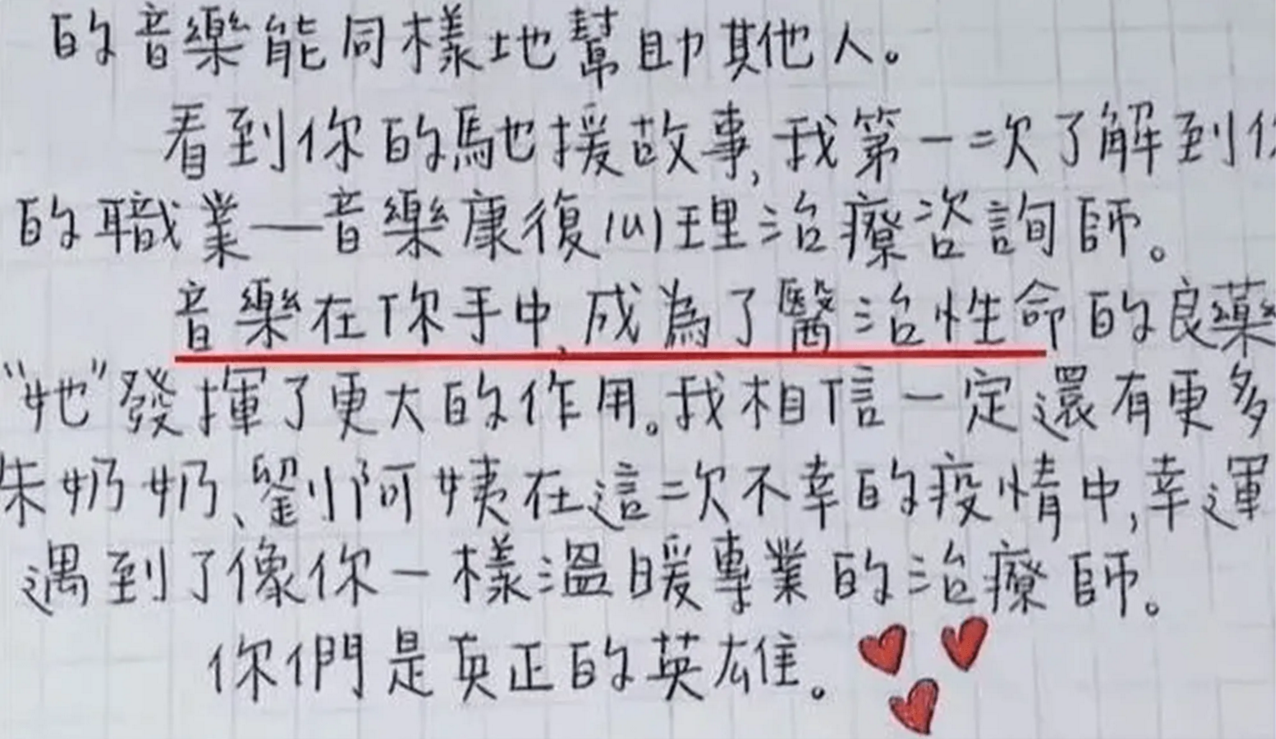 的音樂能同樣地幫助其他人。
看到你的馳援故事,我第一次了解到你
的職業——音樂康復心理治療咨詢師。
音樂在你手中,成為了醫治性命的良藥
“牠”發揮了更大的作用。我相信一定還有更多
朱奶奶、劉阿姨在這次不幸的疫情中,幸運
遇到了像你一樣溫暖專業的治療師。
你們是真正的英雄。